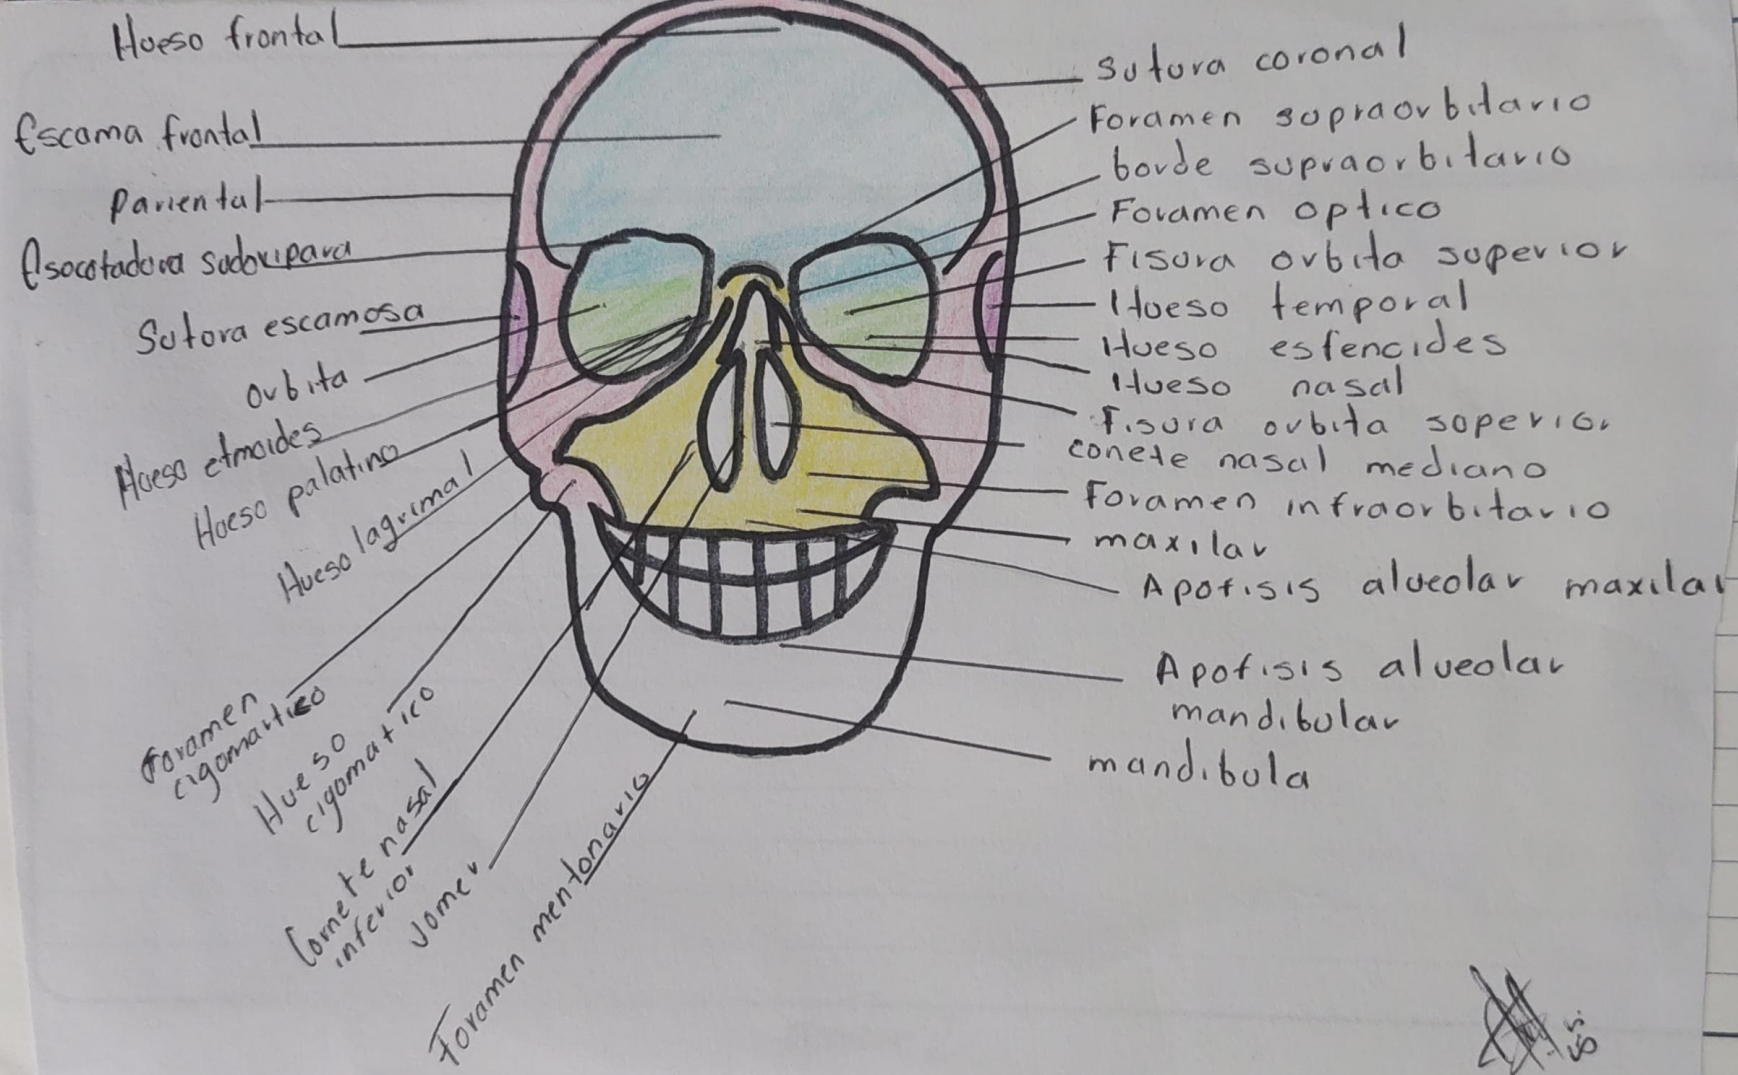 Hueso frontal
Escama frontal
Pariental
Esocotadora sudoripara
Sutora escamosa
orbita
Hueso etmoides
Hueso palatino
Hueso lagrimal
Foramen
cigomartico
Hueso
cigomatico
Cornete nasal
inferior
Jomer
Foramen mentonario
Sutura coronal
Foramen supraorbitario
borde supraorbitario
Foramen optico
Fisura orbita superior
Hueso temporal
Hueso esfencides
Hueso nasal
Fisura orbita soperior
conete nasal mediano
Foramen infraorbitario
maxilar
Apofisis alveolar maxilar
Apofisis alveolar
mandibular
mandibula